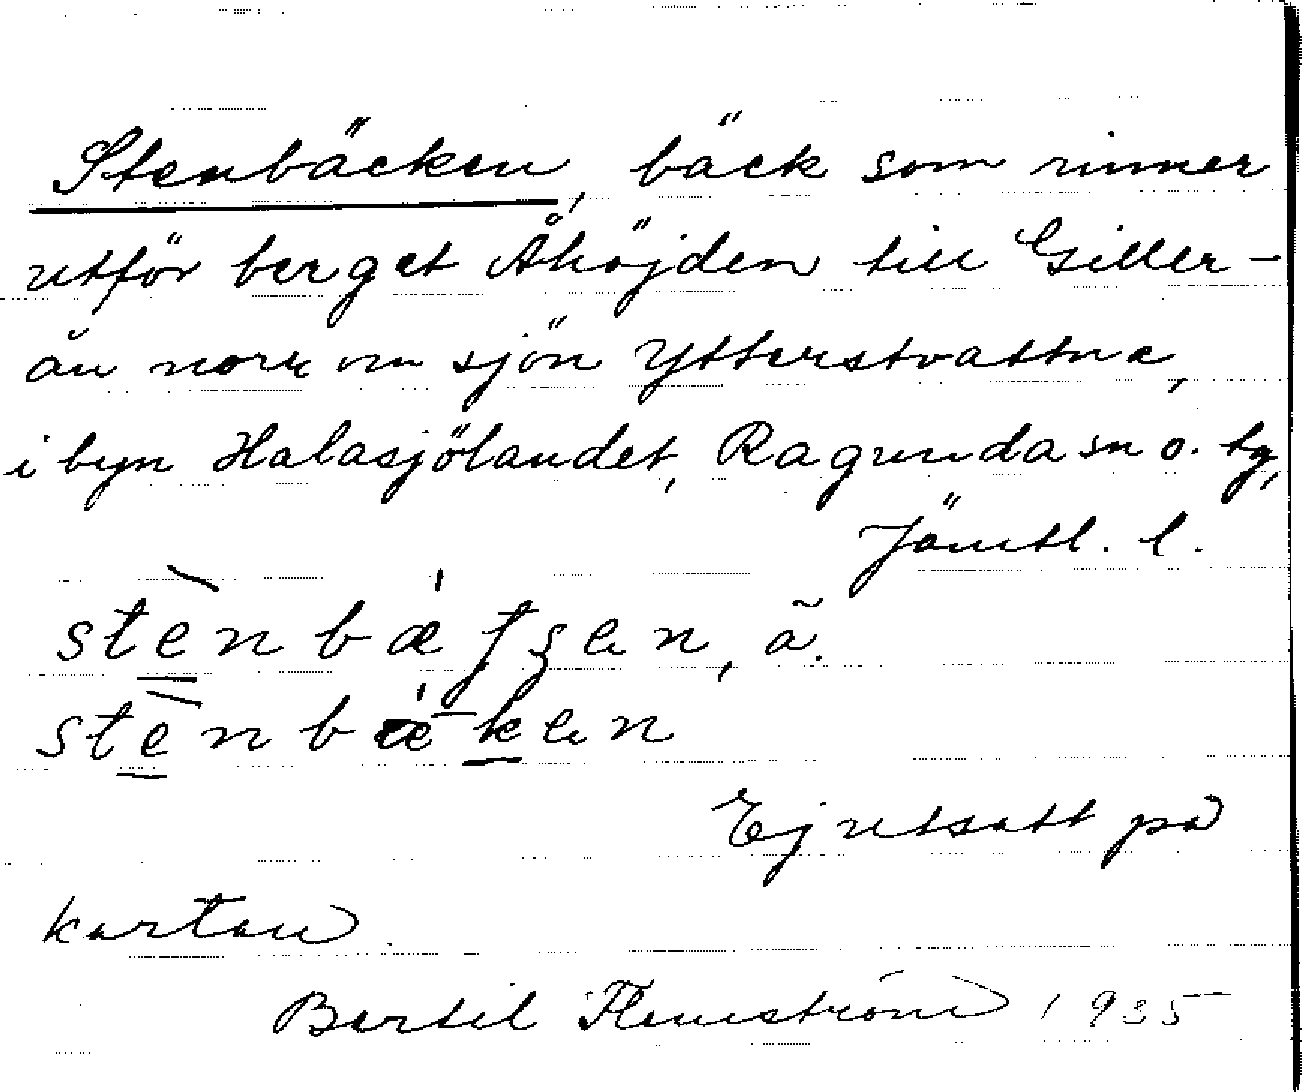 Stenbäcken, bäck som rinner
utför berget Åhöjden till Giller-
ån norr om sjön Ytterstvattne,
i byn Halasjölandet, Ragunda sn o. tg,
Jämtl. l.
stèn bǽ ʄʂen, ä.
stèn bǽken
Ej utsatt på
kartan.
Bertil Flemström 1935